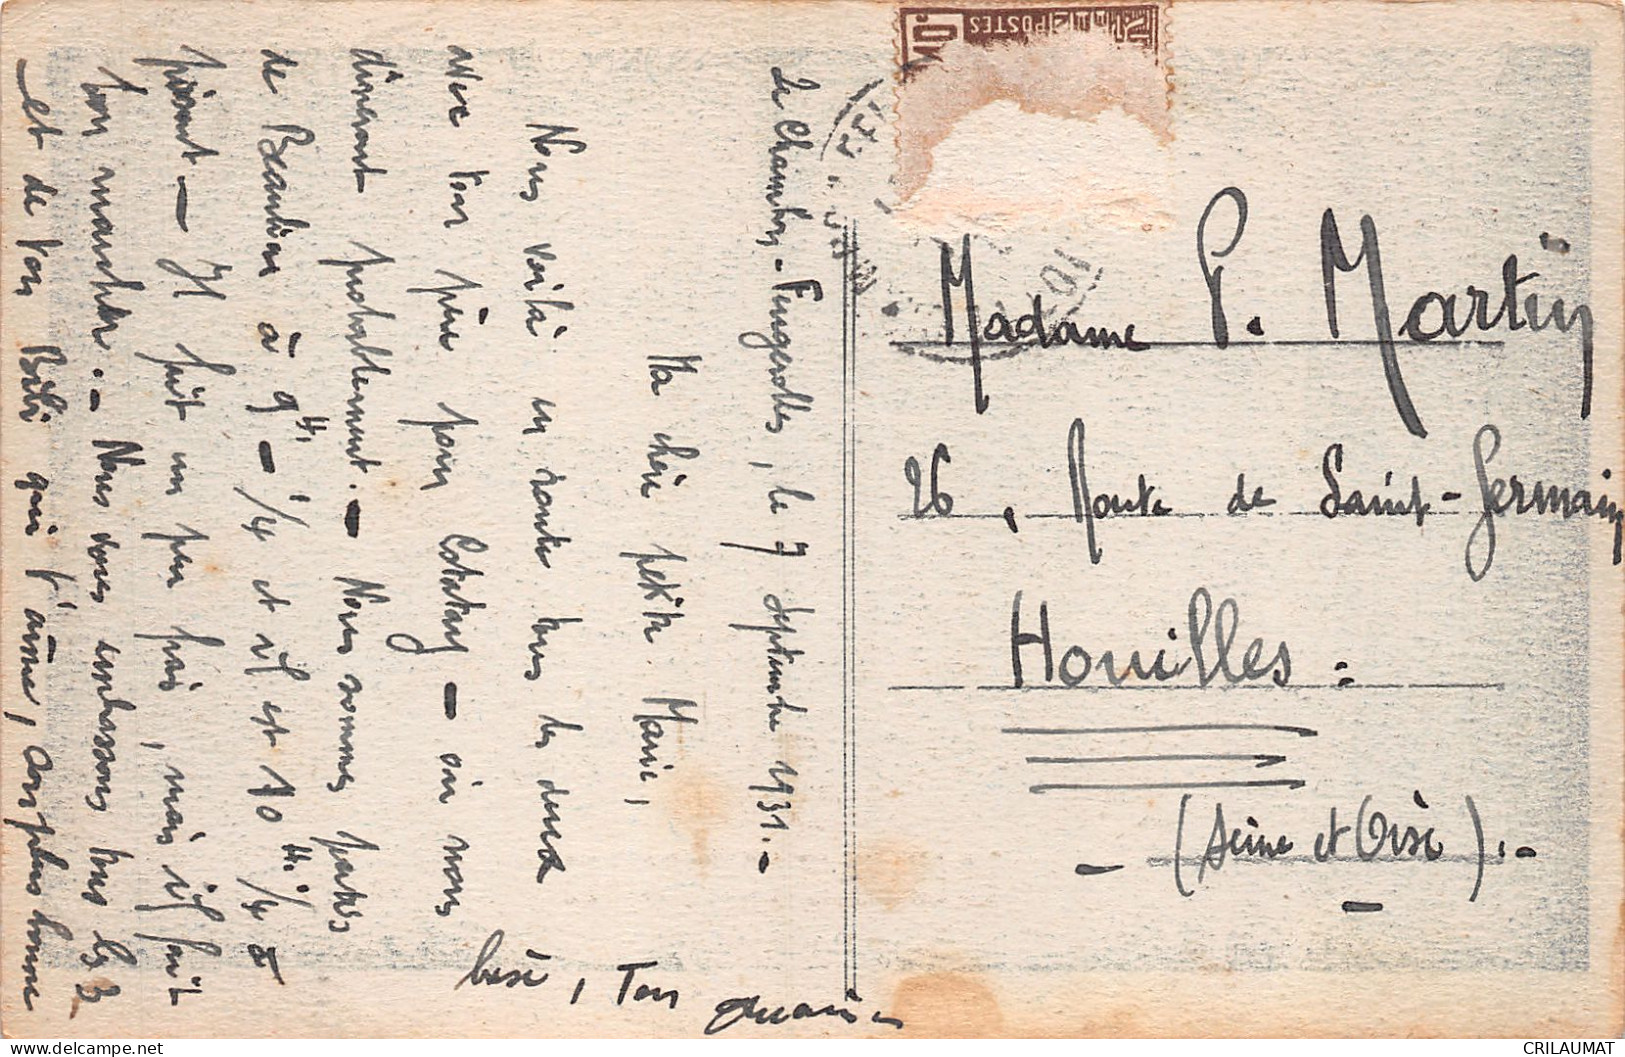 Le Chambon-Feugerolles, le 7 septembre 1931.-
Ma chère petite Marie,
Nous voilà en route tous les deux
avec ton père pour Cotatay - où nous
dînerons probablement. - Nous sommes partis
de Beaulieu à 9 H. 1/4 et il est 10 H. 1/4 à
présent - Il fait un peu frais, mais il fait
bon marcher.- Nous vous embrassons tous les 3
et de ton Bibi qui t'aime, ton plus bonne
bise, Ton
POSTES
Madame P. Martin
26, Route de Saint-Germain
Houilles :
(Seine et Oise).-
CRILAUMAT